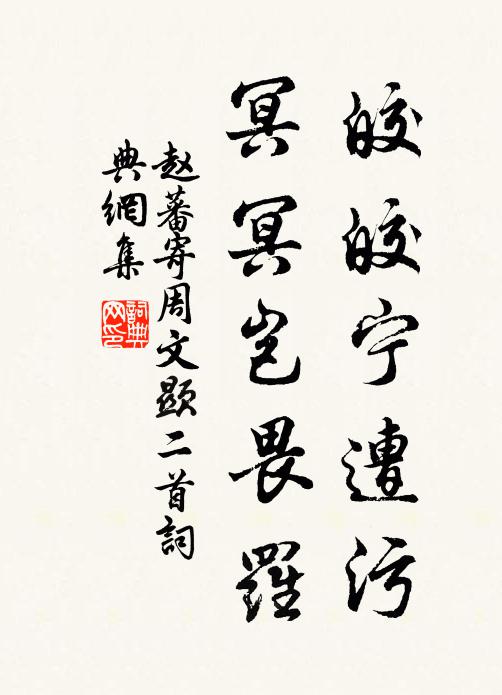 皎皎宁遭污
冥冥岂畏羅
赵蕃寄周文顯二首詞
典網集
詞典
网印